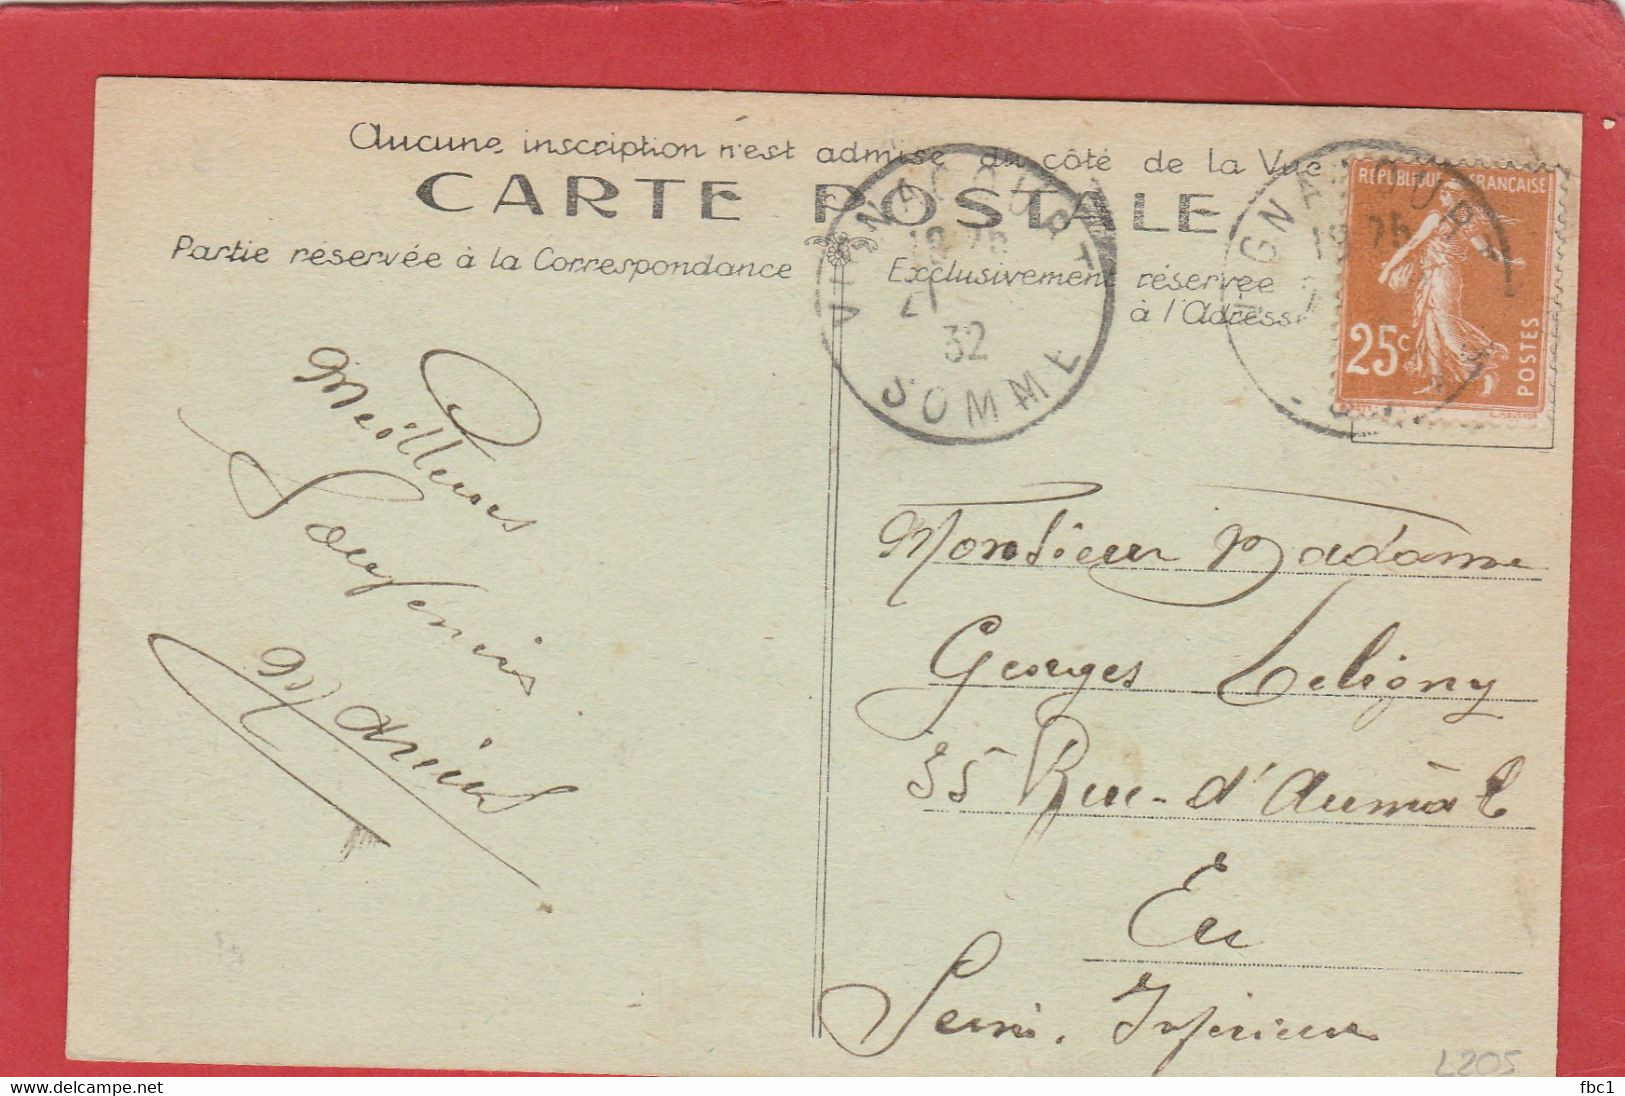 Aucune inscription n'est admise du côté de la Vue
CARTE POSTALE
Partie réservée à la Correspondance
Exclusivement réservée
à l'Adresse
VIGNACOURT
19 25
21
32
SOMME
VIGNACOURT
RÉPUBLIQUE FRANÇAISE
25c
POSTES
Meilleurs
Souvenirs
Marius
Monsieur Madame
Georges Leligny
35 Rue d'Aumale
Eu
Seine Inférieure
L205
www.delcampe.net
fbc1